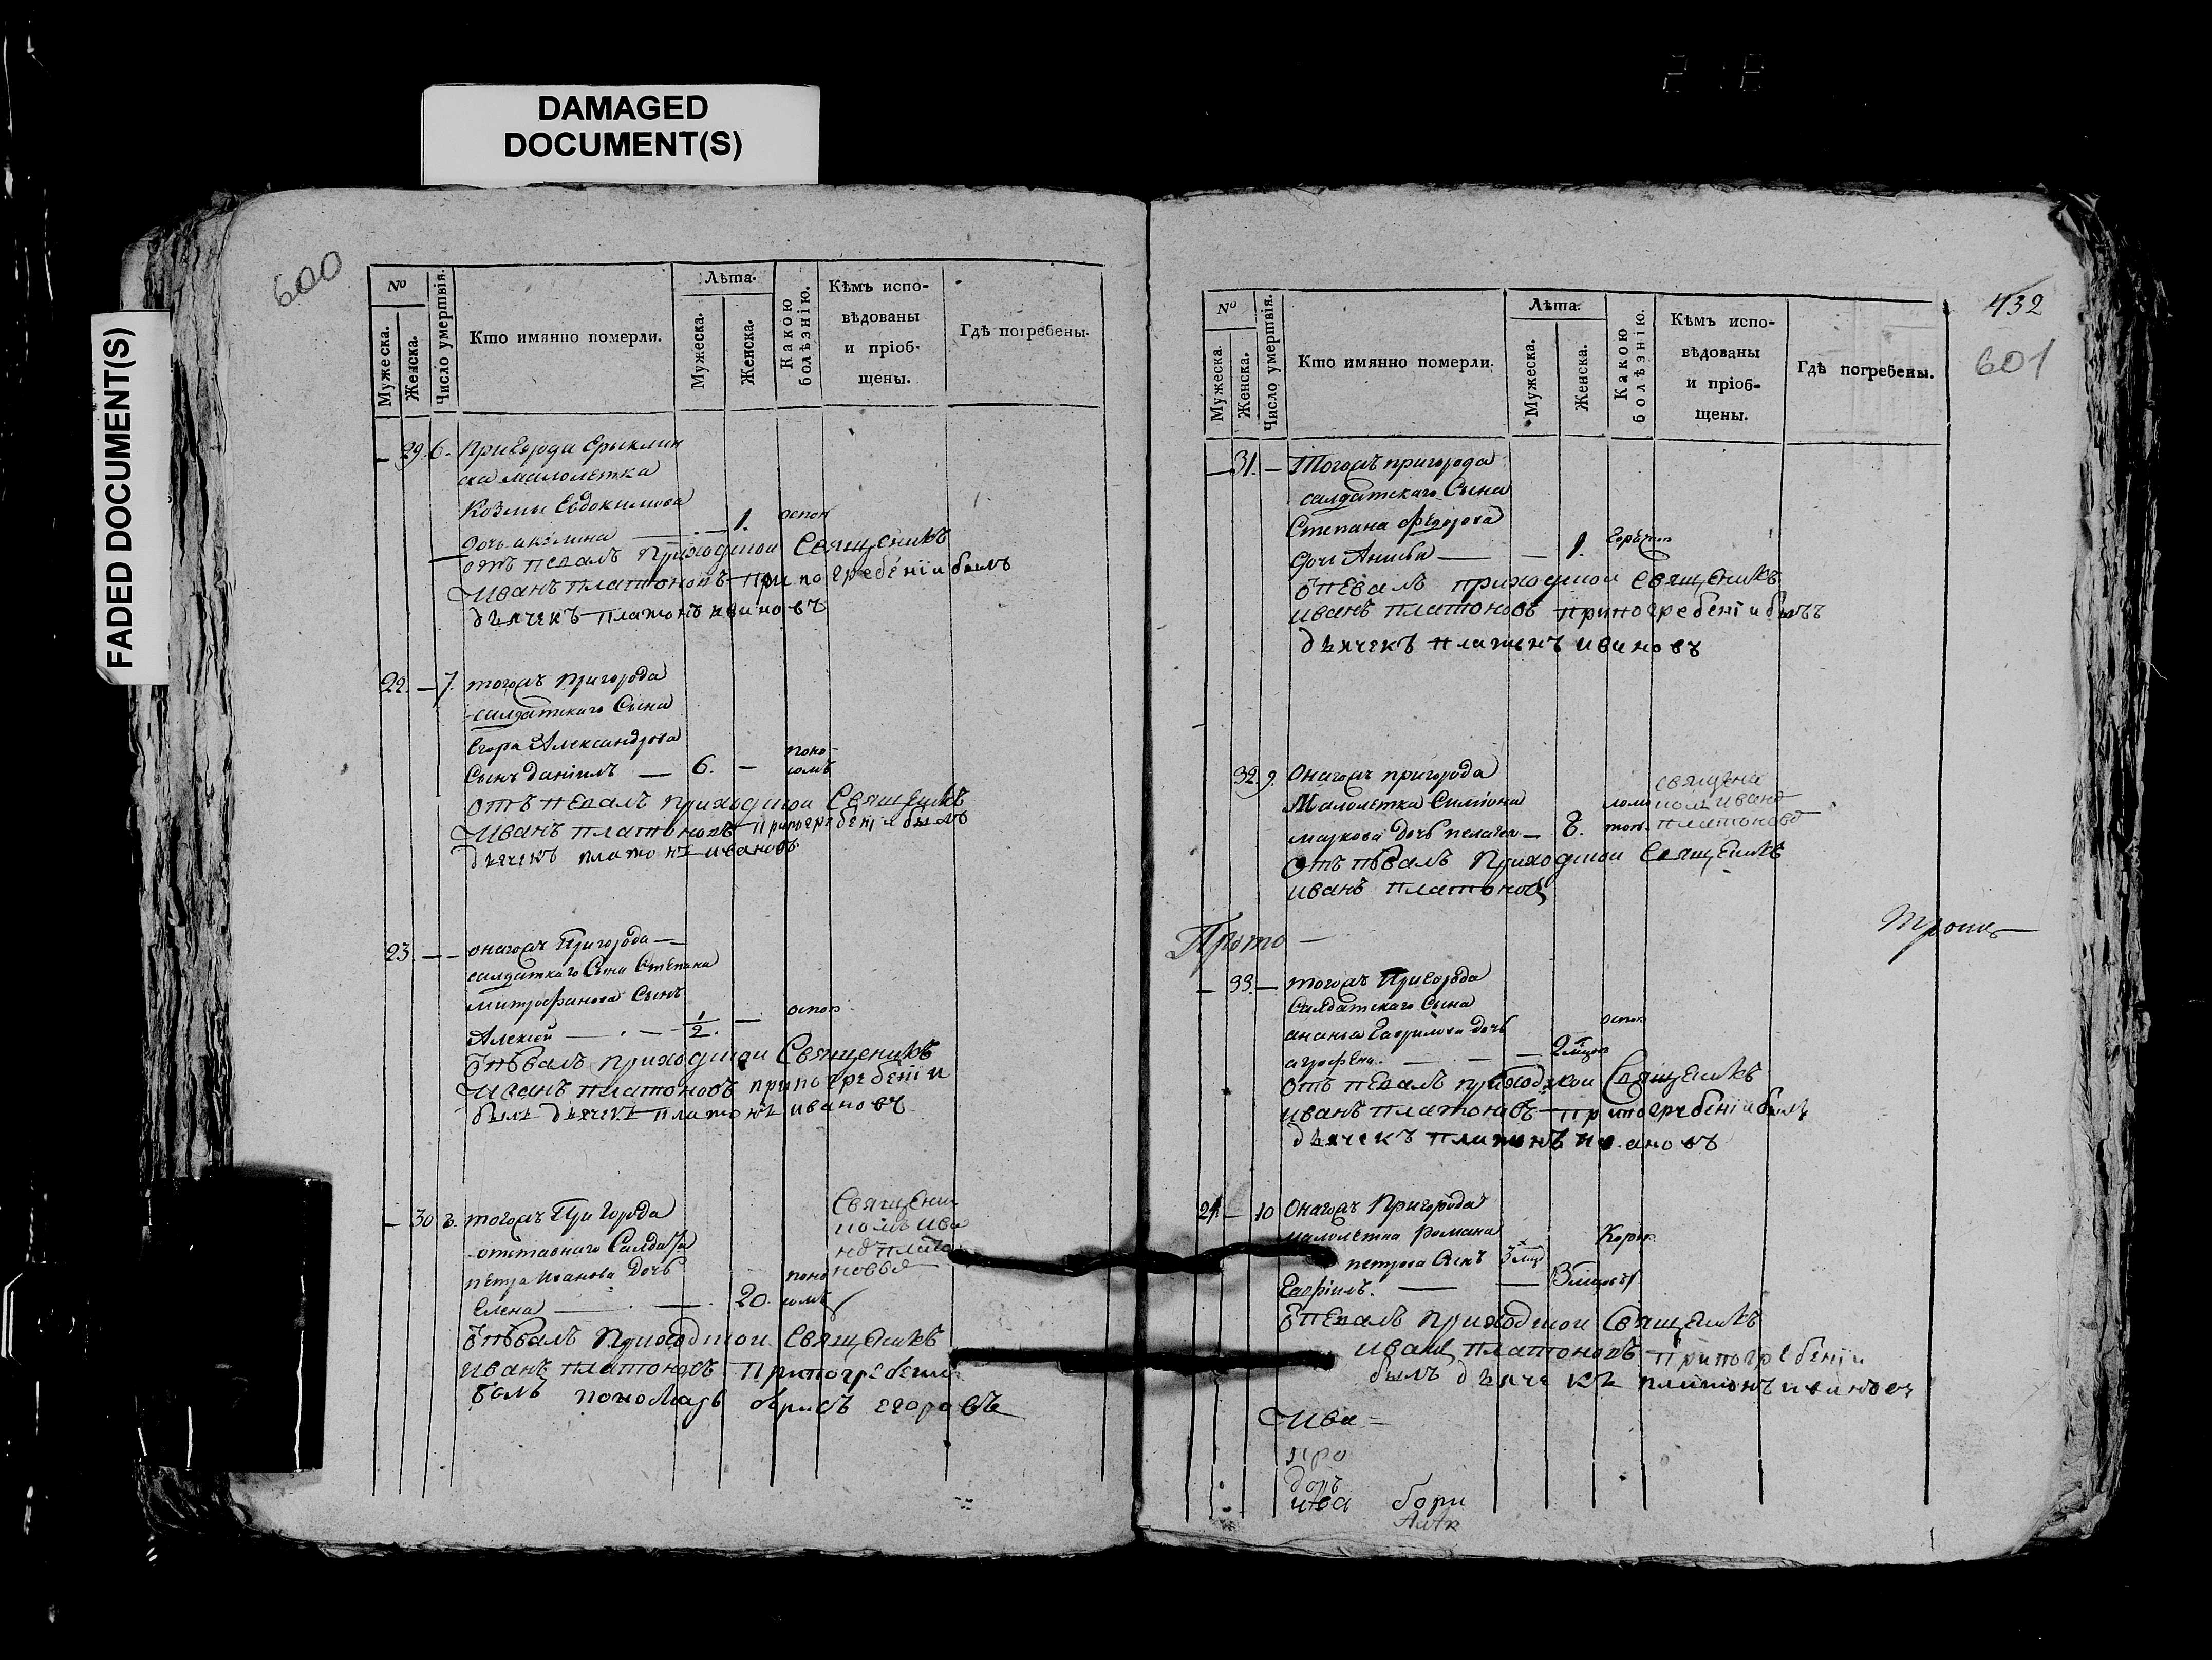 DAMAGED
DOCUMENT(S)
FADED DOCUMENT(S)
600
№
Мужеска.
Женска.
Число умертвія.
Кто имянно померли.
Лѣта.
Мужеска.
Женска.
Какою
болѣзнію.
Кѣмъ испо-
вѣдованы
и пріоб-
щены.
Гдѣ погребены.
— 29. 6. Пригорода Ерыклин
ска малолетка
Козмы Евдокимова
дочь акилина — 1. оспою
отъ певалъ приходской Священикъ
Иванъ платоновъ при погребеніи былъ
дьячекъ платонъ ивановъ
22. — 7. тогожъ пригорода
салдатскаго Сына
Егора Александрова
Сынъ даніилъ — 6. — поно
сомъ
отъ певалъ приходской Священикъ
Иванъ платоновъ при погребеніи былъ
дьячекъ платонъ ивановъ
23. — — онагожъ Пригорода —
салдатскаго Сына Степана
митрофанова Сынъ
Алексей — 1/2. — оспою
отпѣвалъ приходской Священикъ
Иванъ платоновъ при погребеніи
былъ дьячекъ платонъ ивановъ
— 30 8. тогожъ Пригорода
отставнаго Салдата
петра Иванова Дочь
Елена — 20. поно
сомъ
Священи
комъ ива
номъ плато
новым
отпѣвалъ Приходской Священикъ
Иванъ платоновъ При погребении
былъ пономарь борисъ егоровъ
432
601
№
Мужеска.
Женска.
Число умертвія.
Кто имянно померли.
Лѣта.
Мужеска.
Женска.
Какою
болѣзнію.
Кѣмъ испо-
вѣдованы
и пріоб-
щены.
Гдѣ погребены.
— 31. — Тогожъ пригорода
салдатскаго Сына
Степана федорова
дочь Анисья — — 1. горячкою
отпевалъ приходской священикъ
иванъ платоновъ при погребеніи былъ
дьячекъ платонъ ивановъ
32. 9. Онагожъ пригорода
Малолетка Симіона
маркова дочь пелагея — 8. ломо
тою.
священи
комъ иваномъ
платоновом
Отъ пѣвалъ Приходской Священикъ
иванъ платоновъ
Прото —
— 33. — тогожъ Пригорода
Салдатскаго Сына
ананья Гаврилова дочь
агрофена. — — — 2 мѣсецов оспою
отъ певалъ приходской Священикъ
иванъ платоновъ при погребеніи былъ
дьячекъ платонъ ивановъ
24. — 10 Онагожъ Пригорода
малолетка романа
петрова Сынъ 3 мѣс Корью
Гавріилъ. — — 3 мѣсецов
отпевалъ Приходской Священикъ
иванъ платоновъ при погребеніи
былъ дьячекъ платонъ ивановъ
Ива —
про
ива бори